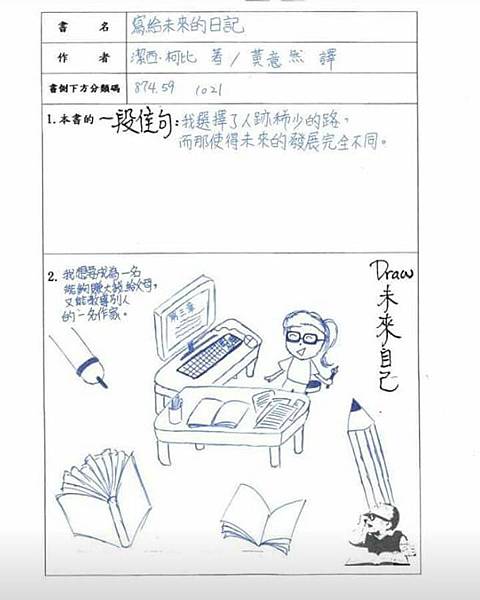 書名 寫給未來的日記
作者 潔西.柯比 著/黃意然 譯
書側下方分類碼 874.59 1021
1.本書的一段佳句:我選擇了人跡稀少的路,
而那使得未來的發展完全不同。
2. 我想要成為一名
能夠賺大錢給父母,
又能教導別人
的一名作家。
Draw
未來自己
第三章